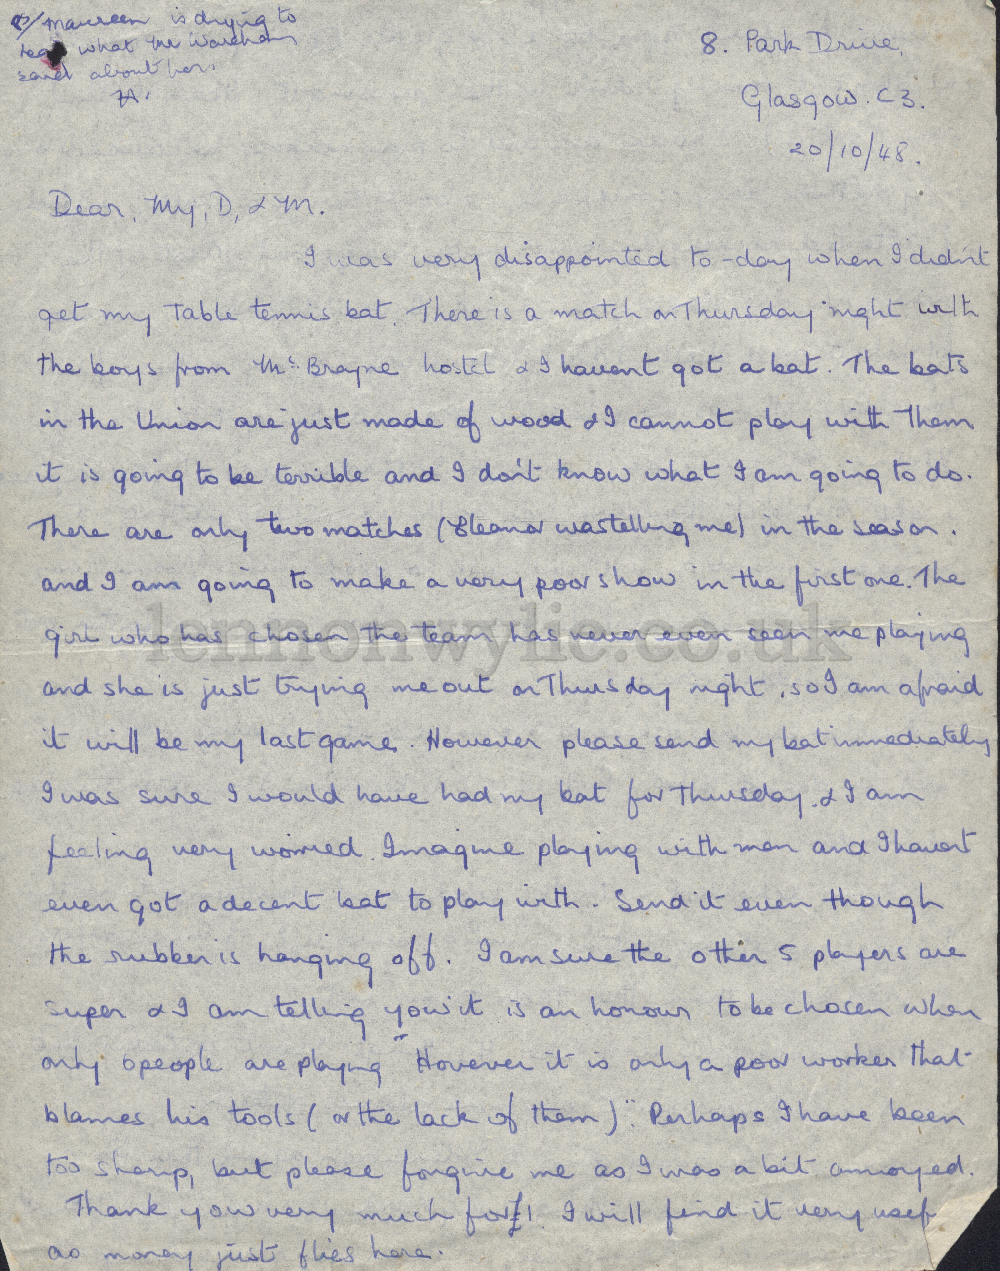 P/ Maureen is dying to
what the Warden
said about her.
8. Park Drive,
Glasgow. C3.
20/10/48.
Dear, My, D, & M.
I was very disappointed to-day when I didn't
get my Table tennis bat. There is a match on Thursday night with
the boys from McBrayne hostel & I havent got a bat. The bats
in the Union are just made of wood & I cannot play with them
it is going to be terrible and I don't know what I am going to do.
There are only two matches (Eleanor was telling me) in the season.
and I am going to make a very poor show in the first one. The
girl who has chosen the team has never even seen me playing
lennonwylie.co.uk
and she is just trying me out on Thursday night, so I am afraid
it will be my last game. However please send my bat immediately
I was sure I would have had my bat for Thursday. & I am
feeling very worried. Imagine playing with men and I havent
even got a decent bat to play with. Send it even though
the rubber is hanging off. I am sure the other 5 players are
super & I am telling you it is an honour to be chosen when
only 6 people are playing "However it is only a poor worker that
blames his tools (or the lack of them)". Perhaps I have been
too sharp, but please forgive me as I was a bit annoyed.
Thank you very much for £1. I will find it very usef
as money just flies here.